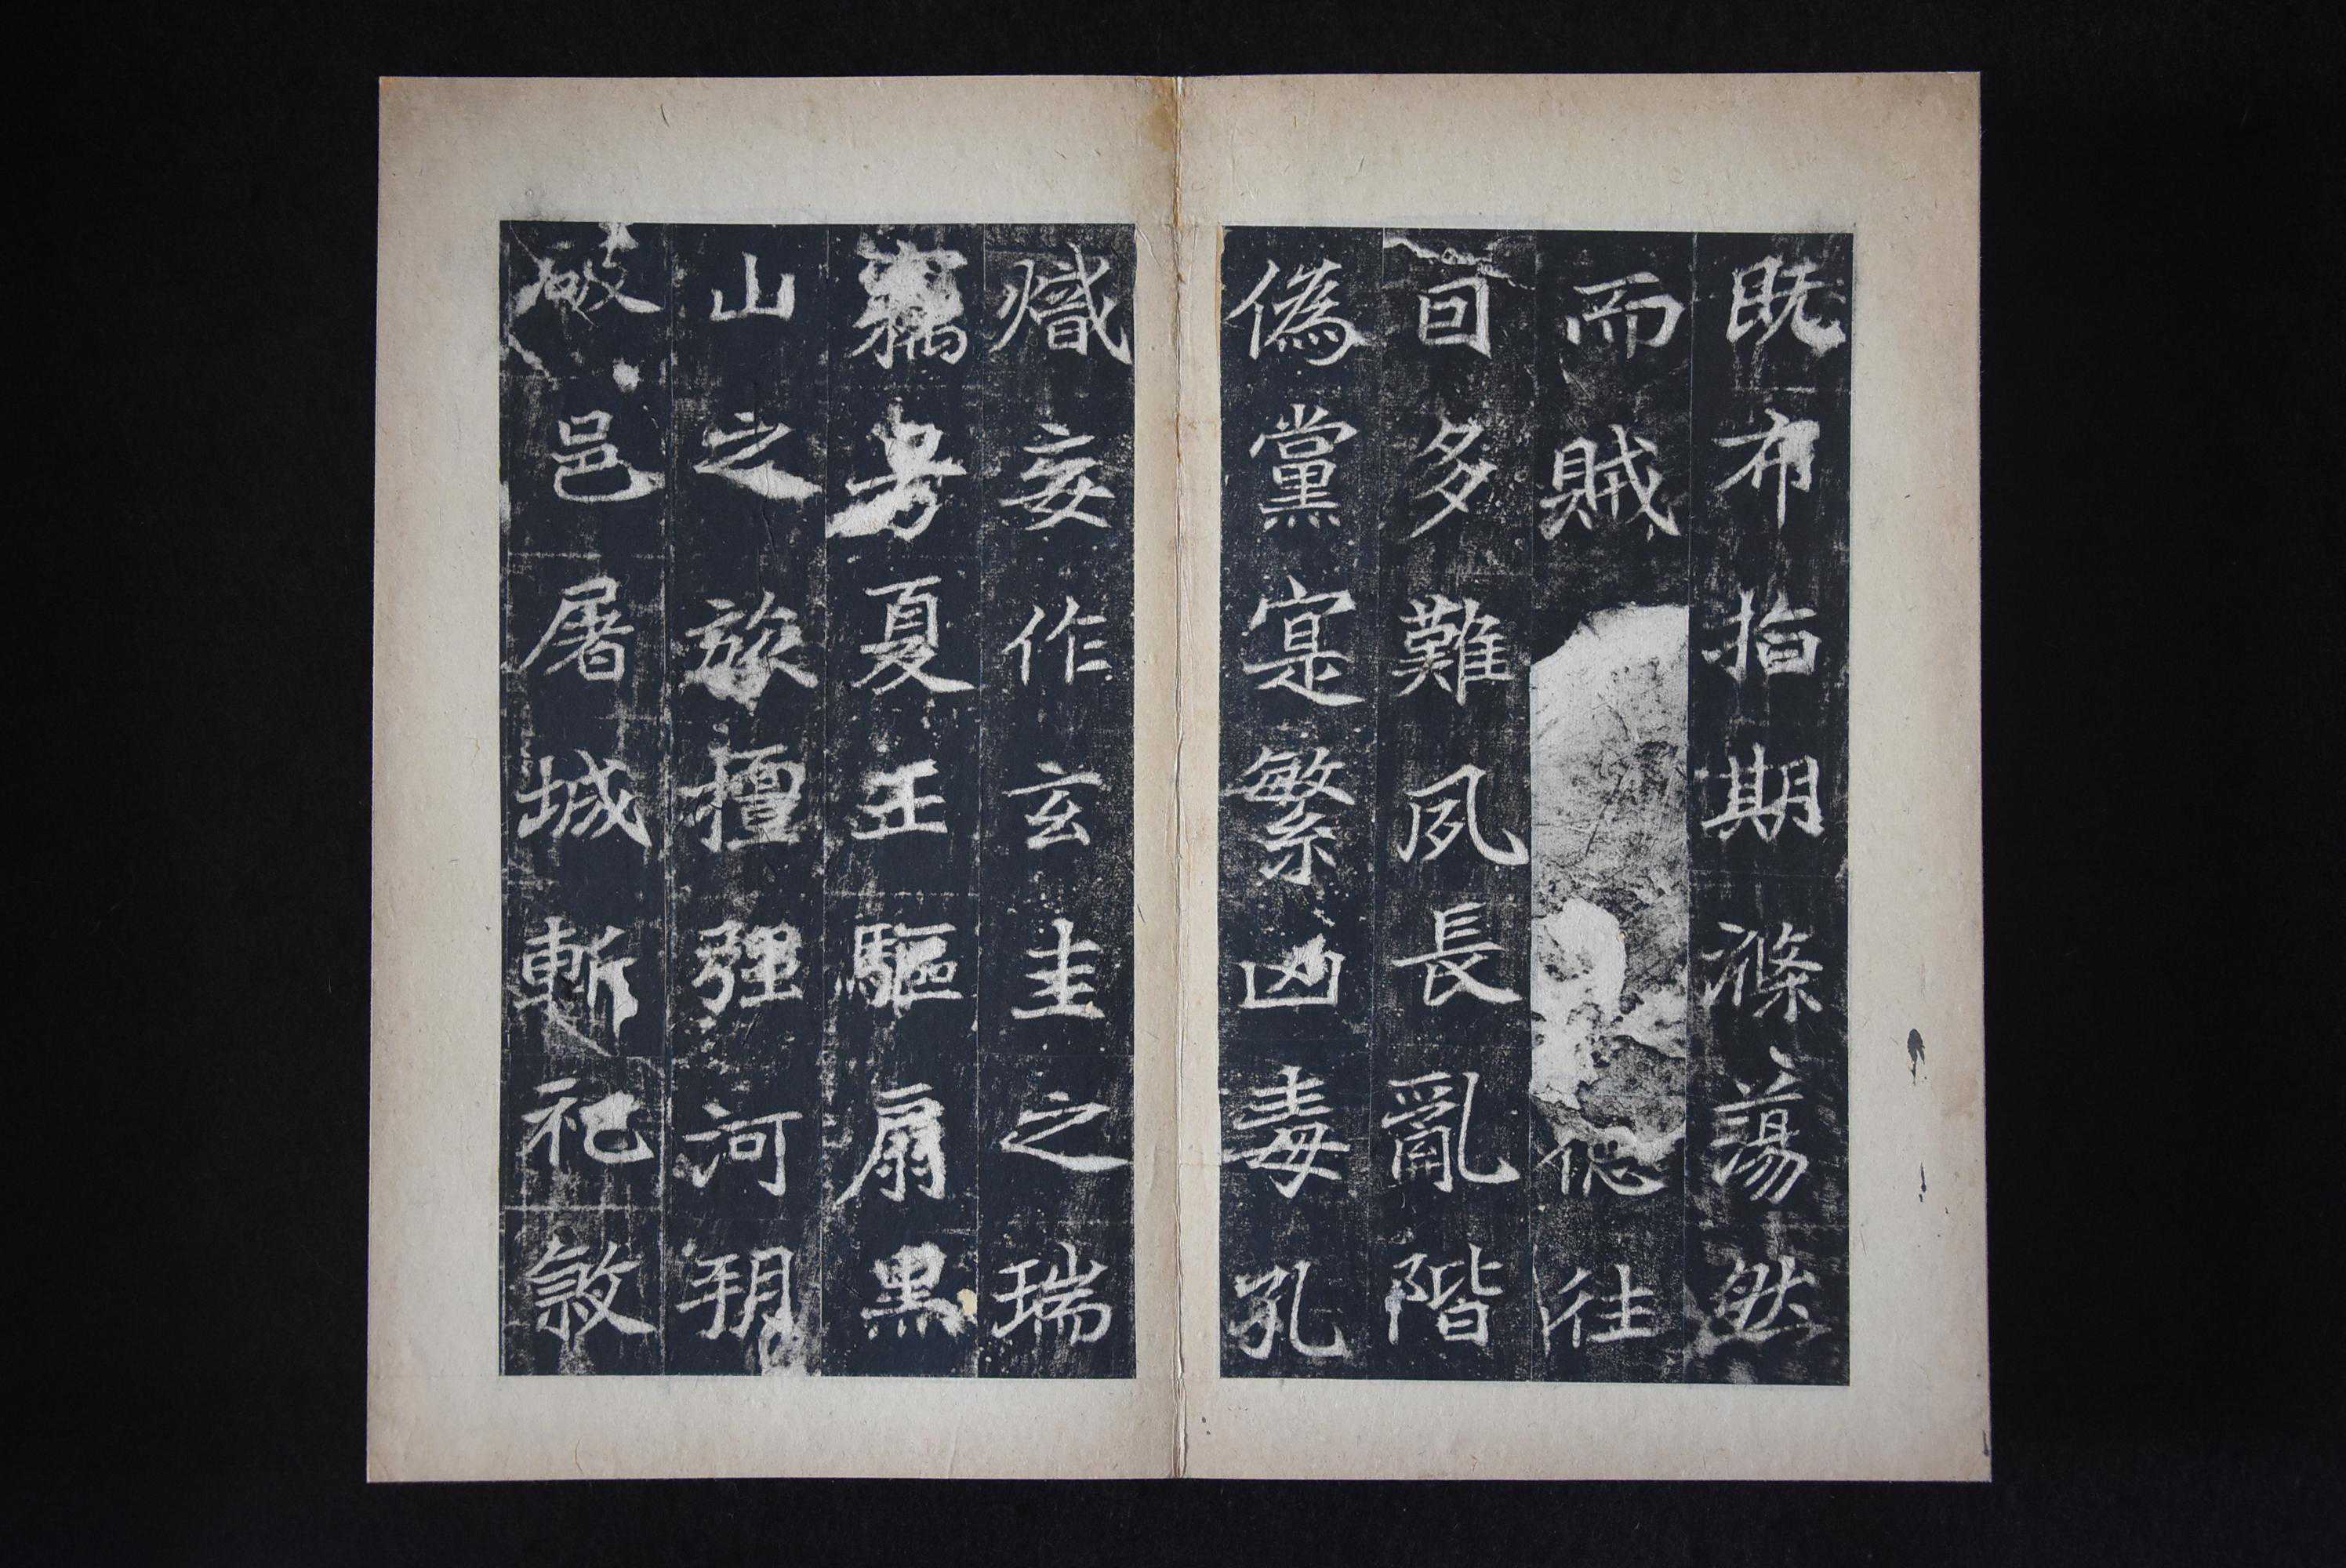 既布指期滌蕩然
而賊偲往
囙多難夙長亂階
偽黨寔繁凶毒孔
熾妄作玄圭之瑞
竊号夏王驅扇黑
山之旅擅强河朔
破邑屠城斬祀煞